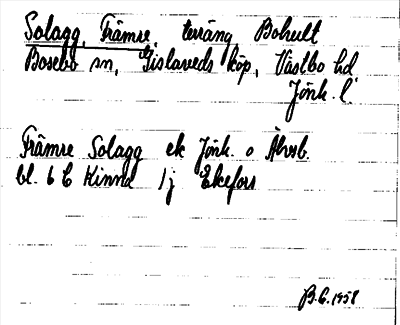 Solagg, Främre, terräng Bohult
Bosebo sn, Gislaveds köp, Västbo hd
Jönk. l.
Främre Solagg ek Jönk. o Älvsb.
bl. 6 C Kinna 1j Ekefors
B.E. 1958